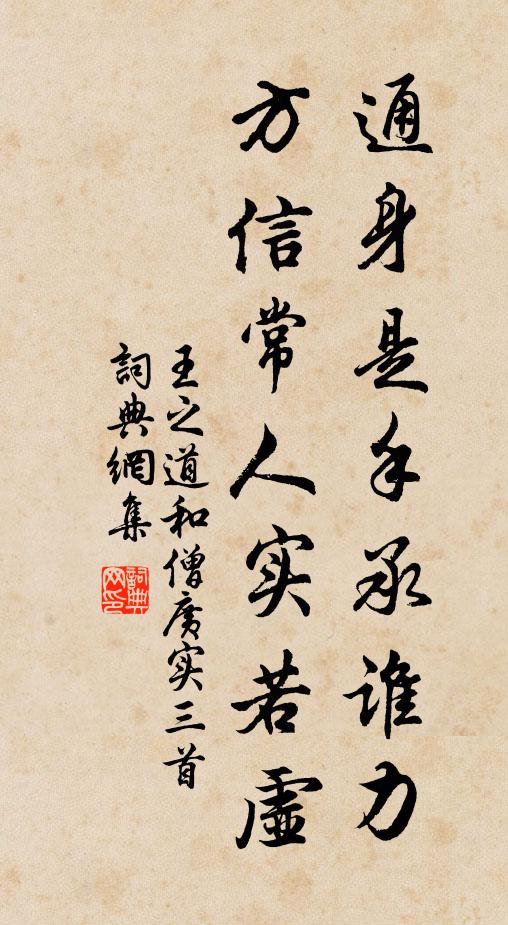 通身是手承谁力
方信常人实若虚
王之道和僧广实三首
詞典網集
詞典网印